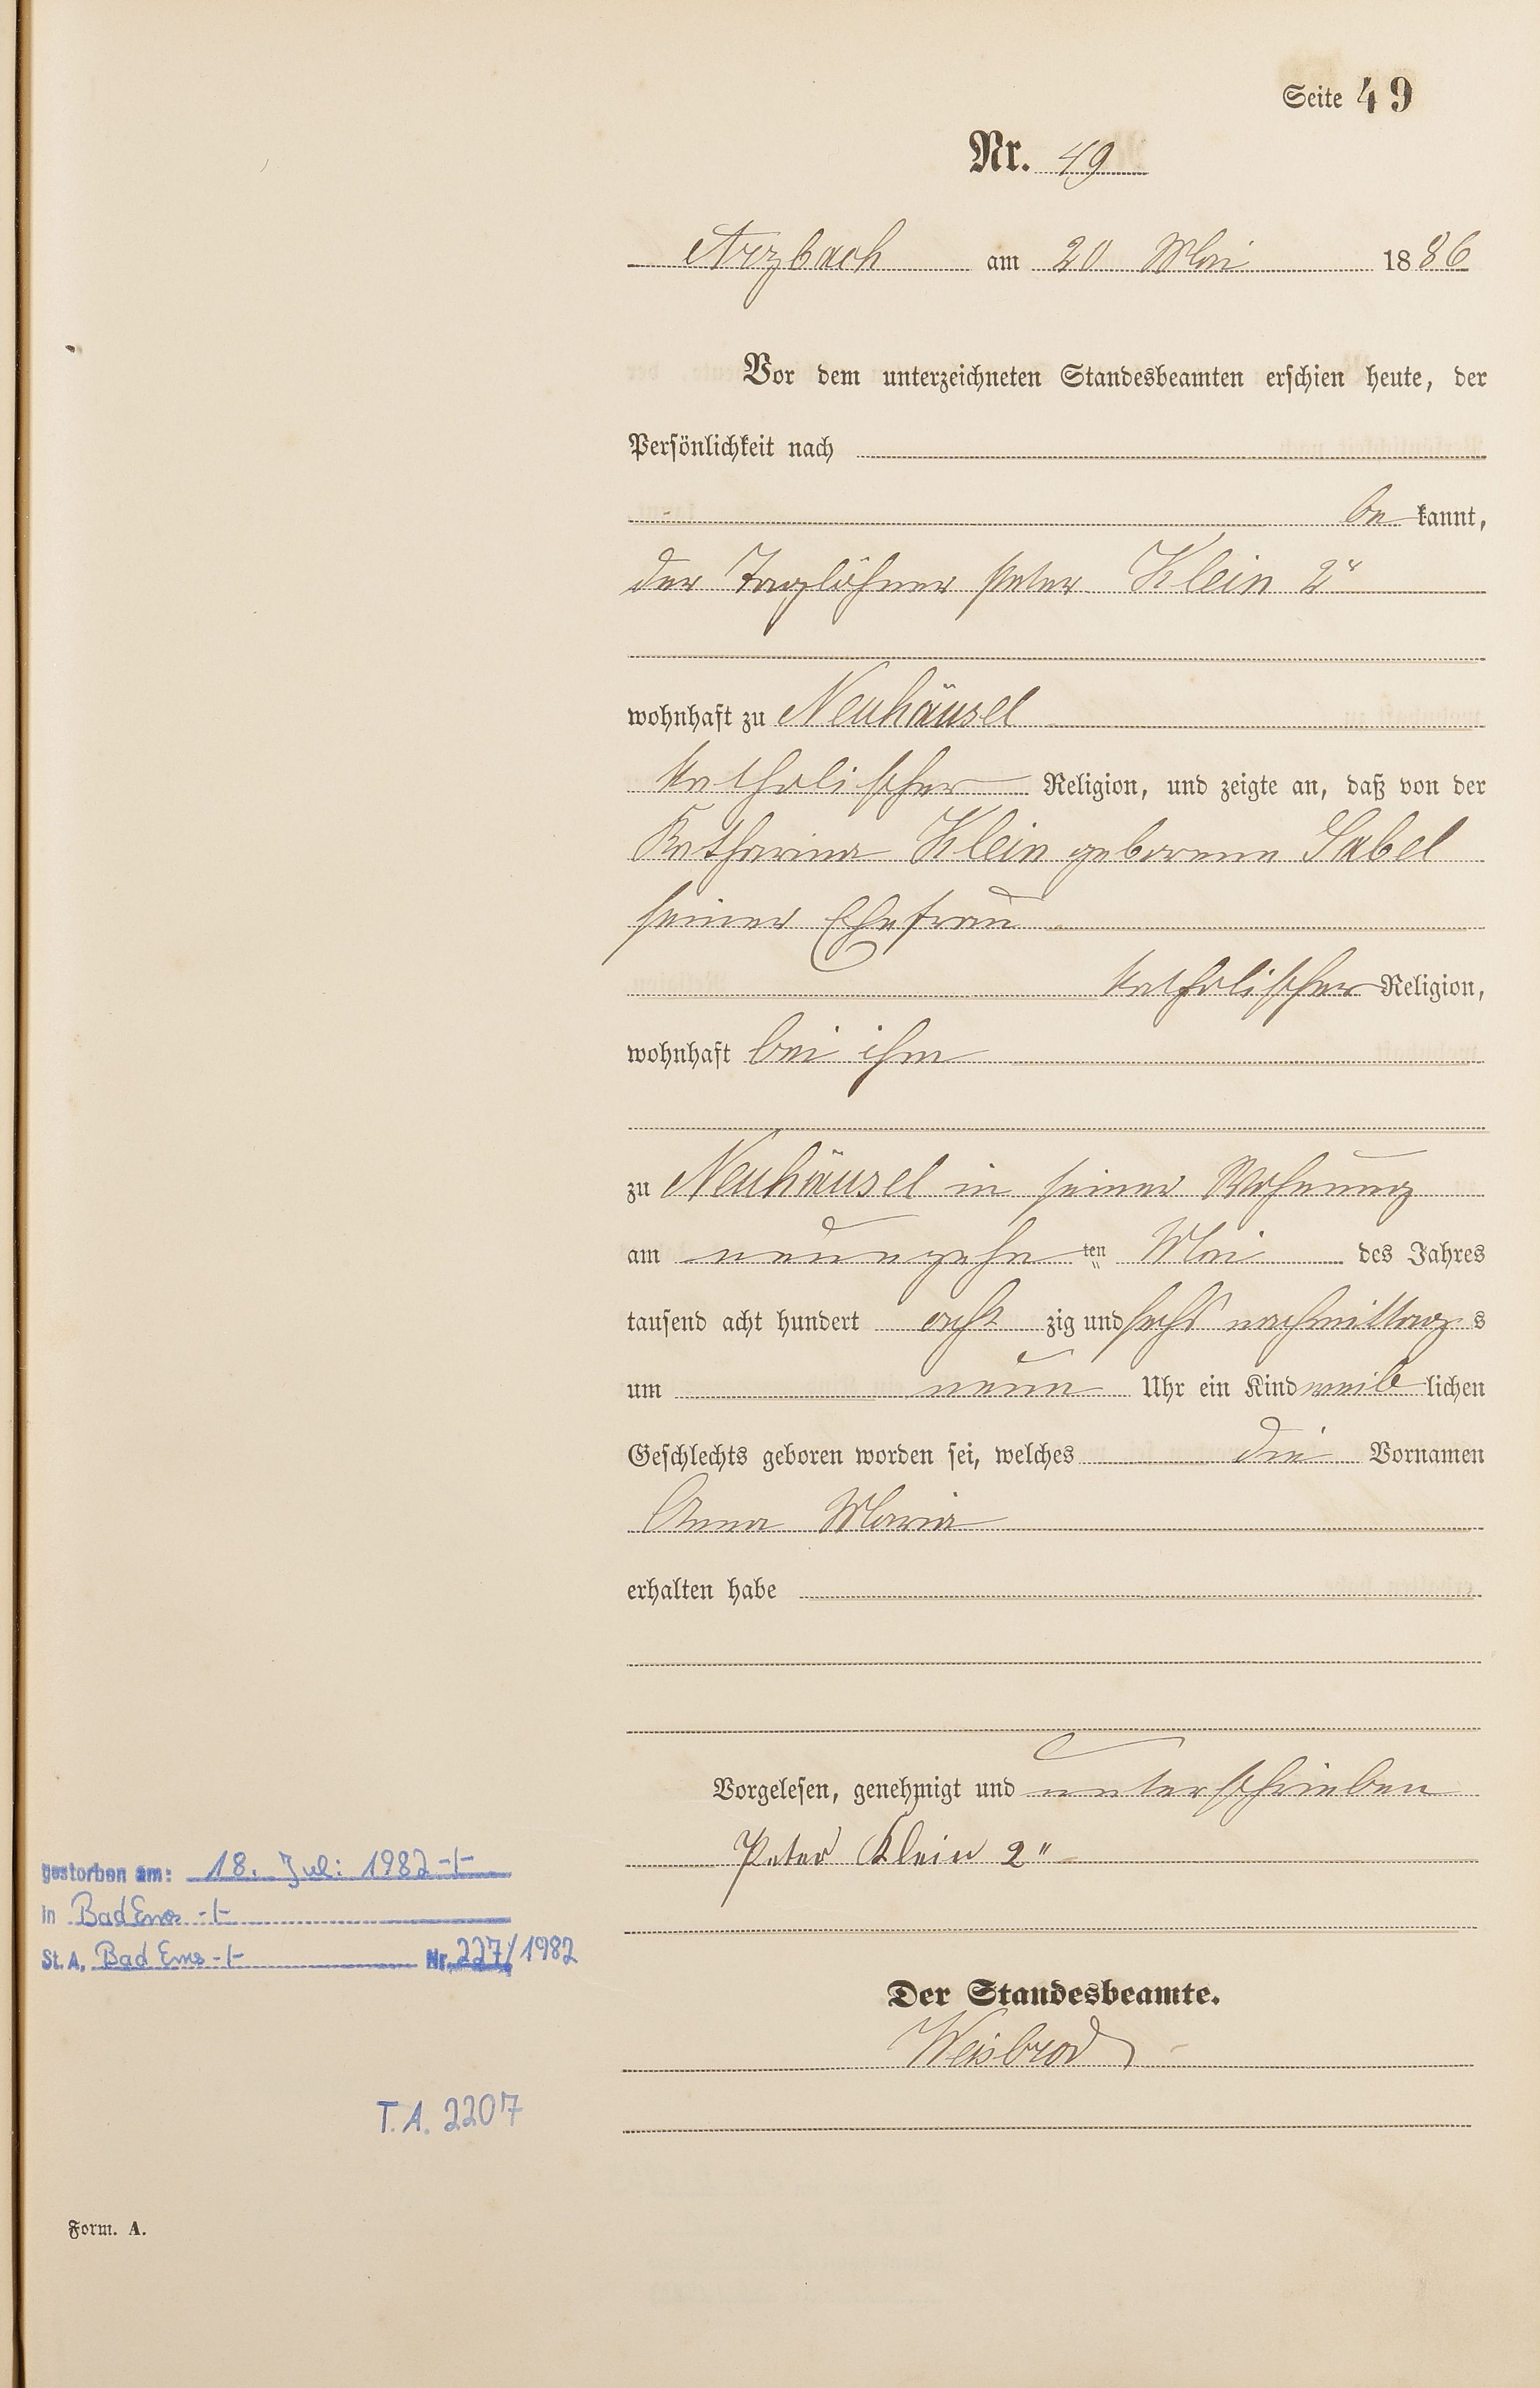 Seite 49
Nr. 49
Arzbach am 20 Mai 1886
Vor dem unterzeichneten Standesbeamten erschien heute, der
Persönlichkeit nach
be kannt,
der Taglöhner Peter Klein 2"
wohnhaft zu Neuhäusel
katholischer Religion, und zeigte an, daß von der
Katharina Klein geborene Sabel
seiner Ehefrau
katholischer Religion,
wohnhaft bei ihm
zu Neuhäusel in seiner Wohnung
am neunzehn ten Mai des Jahres
tausend acht hundert acht zig und sechs nachmittag s
um neun Uhr ein Kind weib lichen
Geschlechts geboren worden sei, welches die Vornamen
Anna Maria
erhalten habe
Vorgelesen, genehmigt und unterschrieben
Peter Klein 2"
Der Standesbeamte.
Weisbrod
gestorben am: 18. Juli 1982 -/-
in Bad Ems -/-
St. A. Bad Ems -/- Nr. 227/1982
T. A. 2207
Form. A.